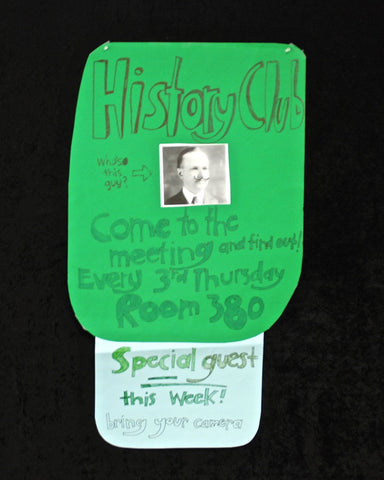 History Club
Who's
this
guy?
Come to the
meeting and find out!
Every 3rd Thursday
Room 380
Special guest
this week!
bring your camera